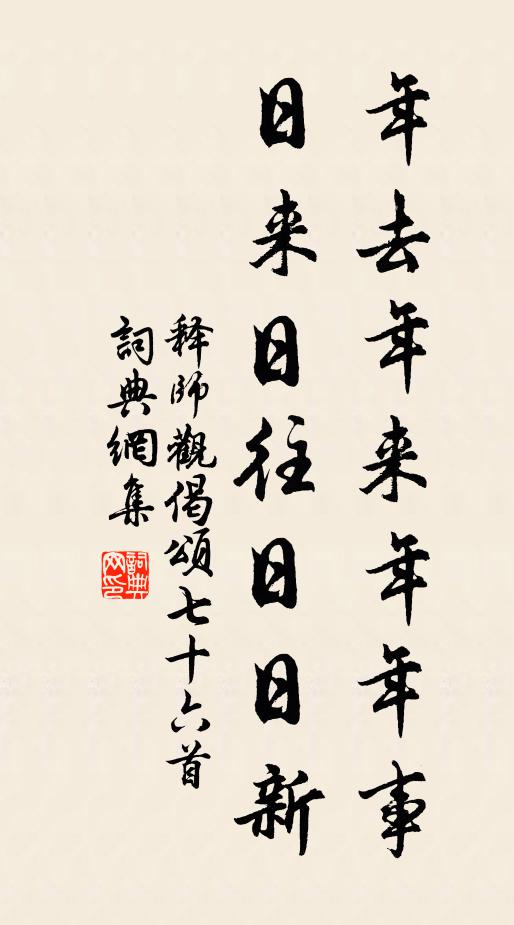 年去年来年年事
日来日往日日新
释师觀偈頌七十六首
詞典網集
詞典网印